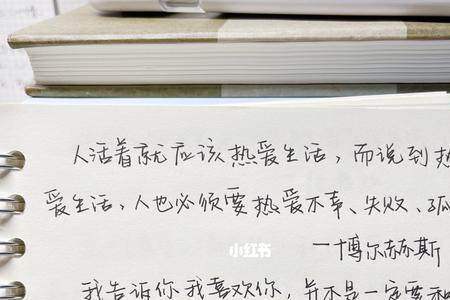 人活着就应该热爱生活,而说到热
爱生活,人也必须要热爱不幸、失败、孤
一博尔赫斯
我告诉你我喜欢你,并不是一定要和
小红书
小红书